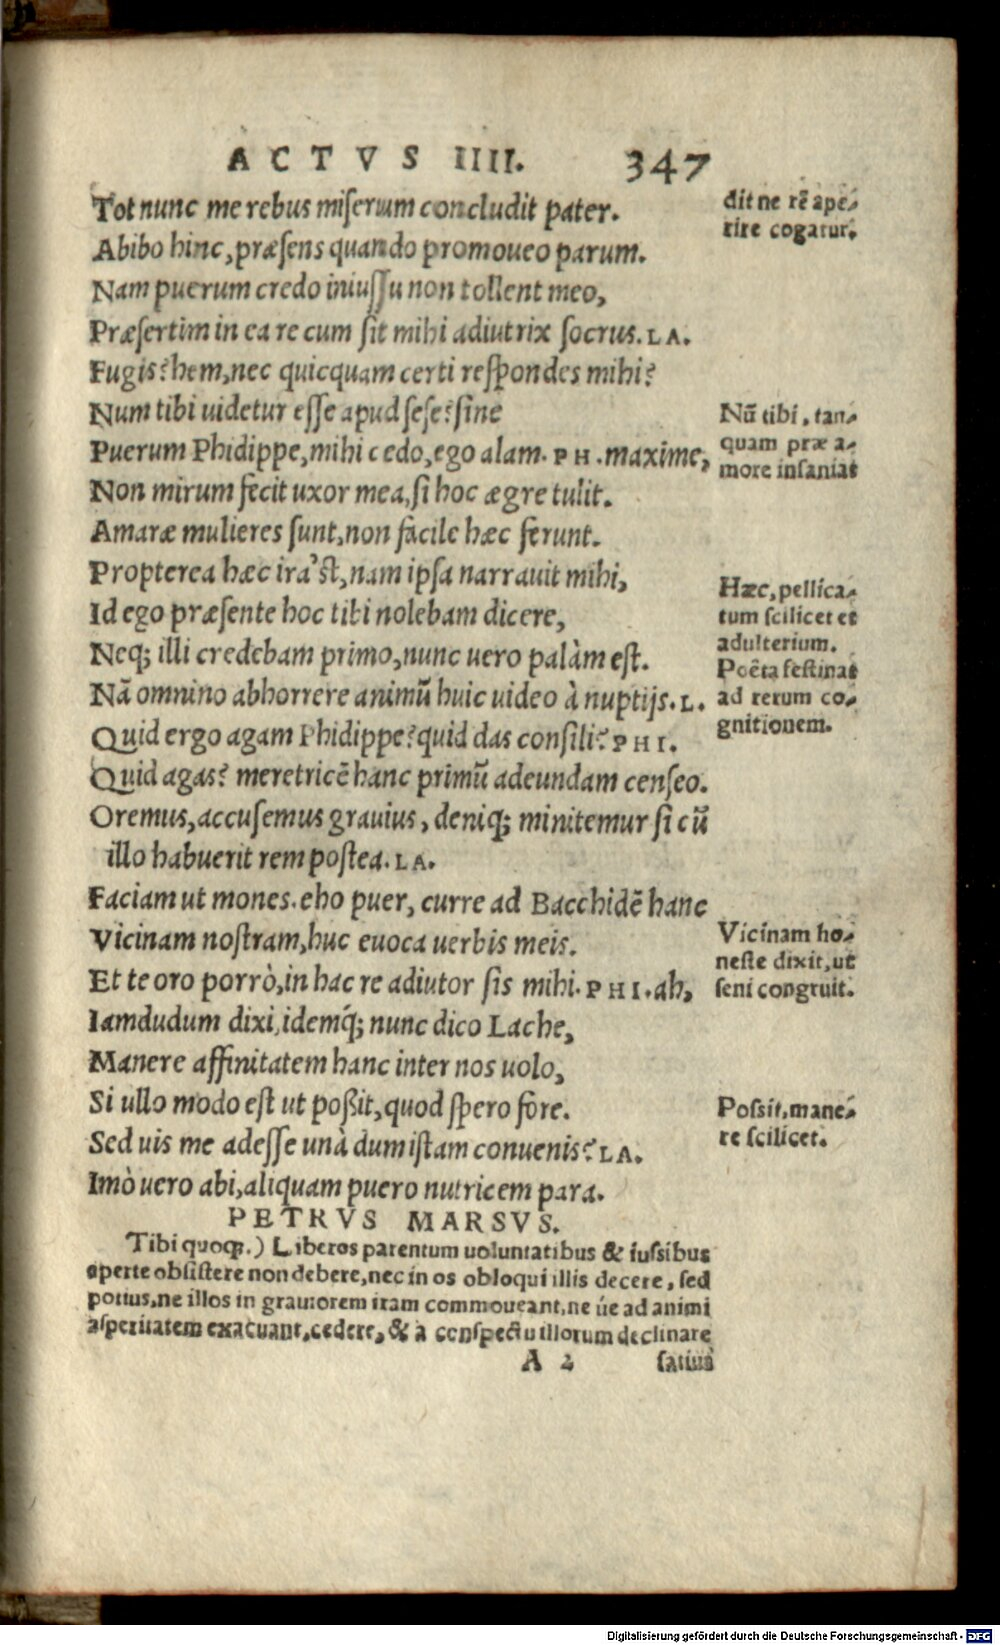 ACTVS IIII. 347
Tot nunc me rebus miſerum concludit pater.
Abibo hinc, præſens quando promoueo parum.
Nam puerum credo iniuſſu non tollent meo,
Præſertim in ea re cum ſit mihi adiutrix ſocrus. LA.
Fugis? hem, nec quicquam certi reſpondes mihi?
Num tibi uidetur eſſe apud ſeſe? ſine
Puerum Phidippe, mihi cedo, ego alam. PH. maxime,
Non mirum fecit uxor mea, ſi hoc ægre tulit.
Amaræ mulieres ſunt, non facile hæc ferunt.
Propterea hæc ira'ſt, nam ipſa narrauit mihi,
Id ego præſente hoc tibi nolebam dicere,
Neq; illi credebam primo, nunc uero palàm eſt.
Nā omnino abhorrere animū huic uideo à nuptijs. L.
Quid ergo agam Phidippe? quid das conſili? PHI.
Quid agas? meretricē hanc primū adeundam cenſeo.
Oremus, accuſemus grauius, deniq; minitemur ſi cū
illo habuerit rem poſtea. LA.
Faciam ut mones. eho puer, curre ad Bacchidē hanc
Vicinam noſtram, huc euoca uerbis meis.
Et te oro porrò, in hac re adiutor ſis mihi. PHI. ah,
Iamdudum dixi, idemq́; nunc dico Lache,
Manere affinitatem hanc inter nos uolo,
Si ullo modo eſt ut poßit, quod ſpero fore.
Sed uis me adeſſe unà dum iſtam conuenis? LA.
Imò uero abi, aliquam puero nutricem para.
dit ne rē ape-
rire cogatur.
Nū tibi, tan-
quam præ a-
more inſanias
Hæc, pellica-
tum ſcilicet et
adulterium.
Poëta feſtinat
ad rerum co-
gnitionem.
Vicinam ho-
neſte dixit, ut
ſeni congruit.
Poſsit, mane-
re ſcilicet.
PETRVS MARSVS.
Tibi quoq;.) Liberos parentum uoluntatibus & iuſsibus
aperte obſiſtere non debere, nec in os obloqui illis decere, ſed
potius, ne illos in grauiorem iram commoueant, ne úe ad animi
aſperitatem exacuant, cedere, & a conſpectu illorum declinare
A 2 ſatius
Digitalisierung gefördert durch die Deutsche Forschungsgemeinschaft - DFG